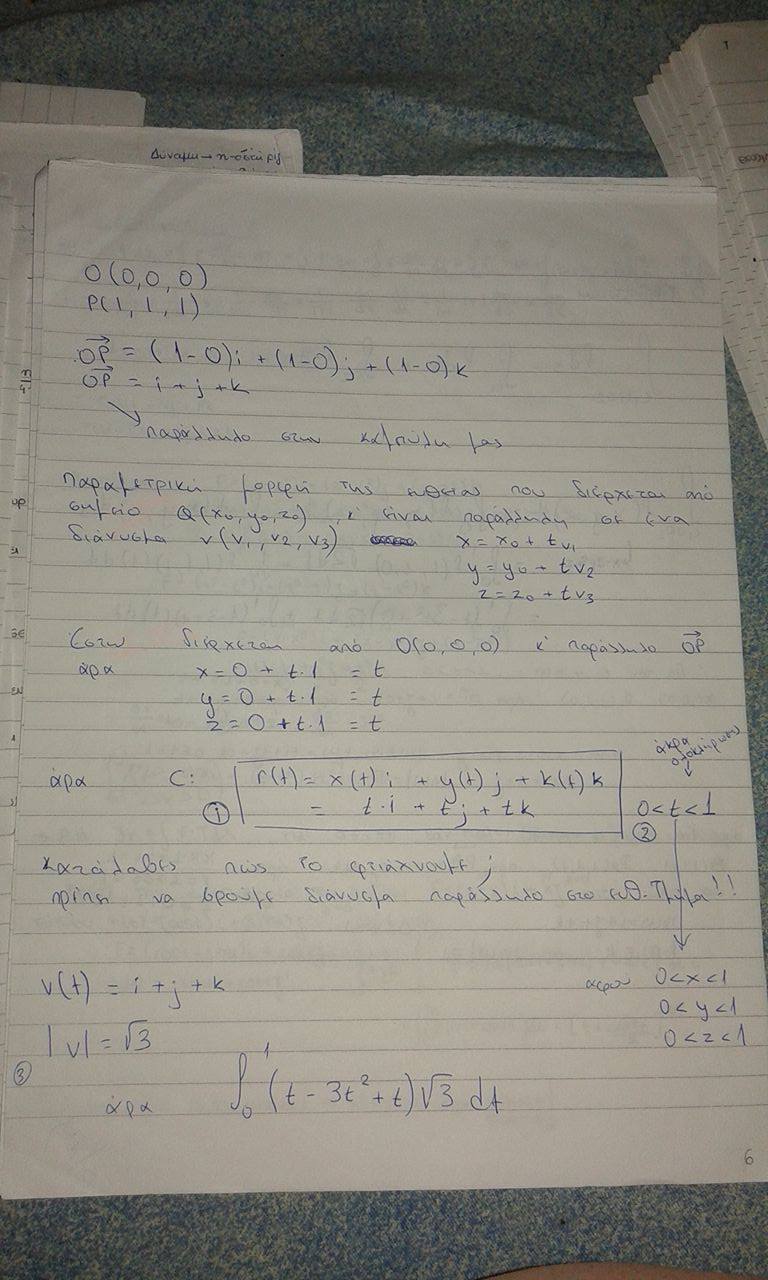 Δυναμη → n-οστή ρίζ
O(0,0,0)
P(1,1,1)
OP = (1-0)i + (1-0)j + (1-0)k
OP = i + j + k
παράλληλο στην καμπύλη μας
Παραμετρική μορφή της ευθείας που διέρχεται από
σημείο Q(x₀,y₀,z₀), κ' είναι παράλληλη σε ένα
διάνυσμα v(v₁,v₂,v₃) x = x₀ + tv₁
y = y₀ + tv₂
z = z₀ + tv₃
Έστω διέρχεται από O(0,0,0) κ' παράλληλο OP
άρα x = 0 + t·1 = t
y = 0 + t·1 = t
z = 0 + t·1 = t
άκρα
ολοκλήρωσης
άρα C: r(t) = x(t)i + y(t)j + k(t)k
① = t·i + tj + tk 0<t<1
②
κατάλαβες πως το φτιάχνουμε;
πρέπει να βρούμε διάνυσμα παράλληλο στο ευθ. Τμήμα!!
v(t) = i + j + k αφού 0<x<1
0<y<1
|v| = √3 0<z<1
③
άρα ∫₀¹ (t - 3t² + t)√3 dt
6